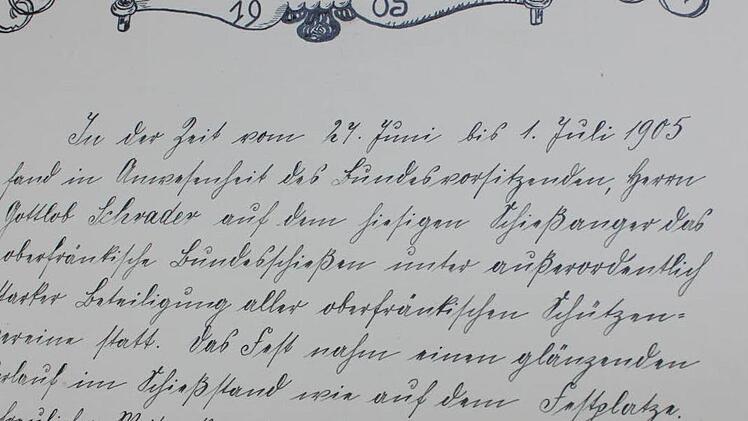 1905
In der Zeit vom 27. Juni bis 1. Juli 1905
fand in Anwesenheit des Bundesvorsitzenden, Herrn
Gottlob Schrader auf dem hiesigen Schießanger das
oberfränkische Bundesschießen unter außerordentlich
starker Beteiligung aller oberfränkischen Schützen=
vereine statt. Das Fest nahm einen glänzenden
Verlauf im Schießstand wie auf dem Festplatze.